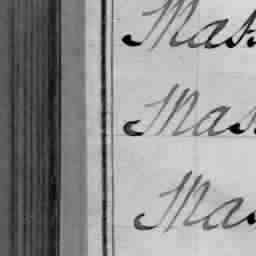 Mas
Mas
Mas